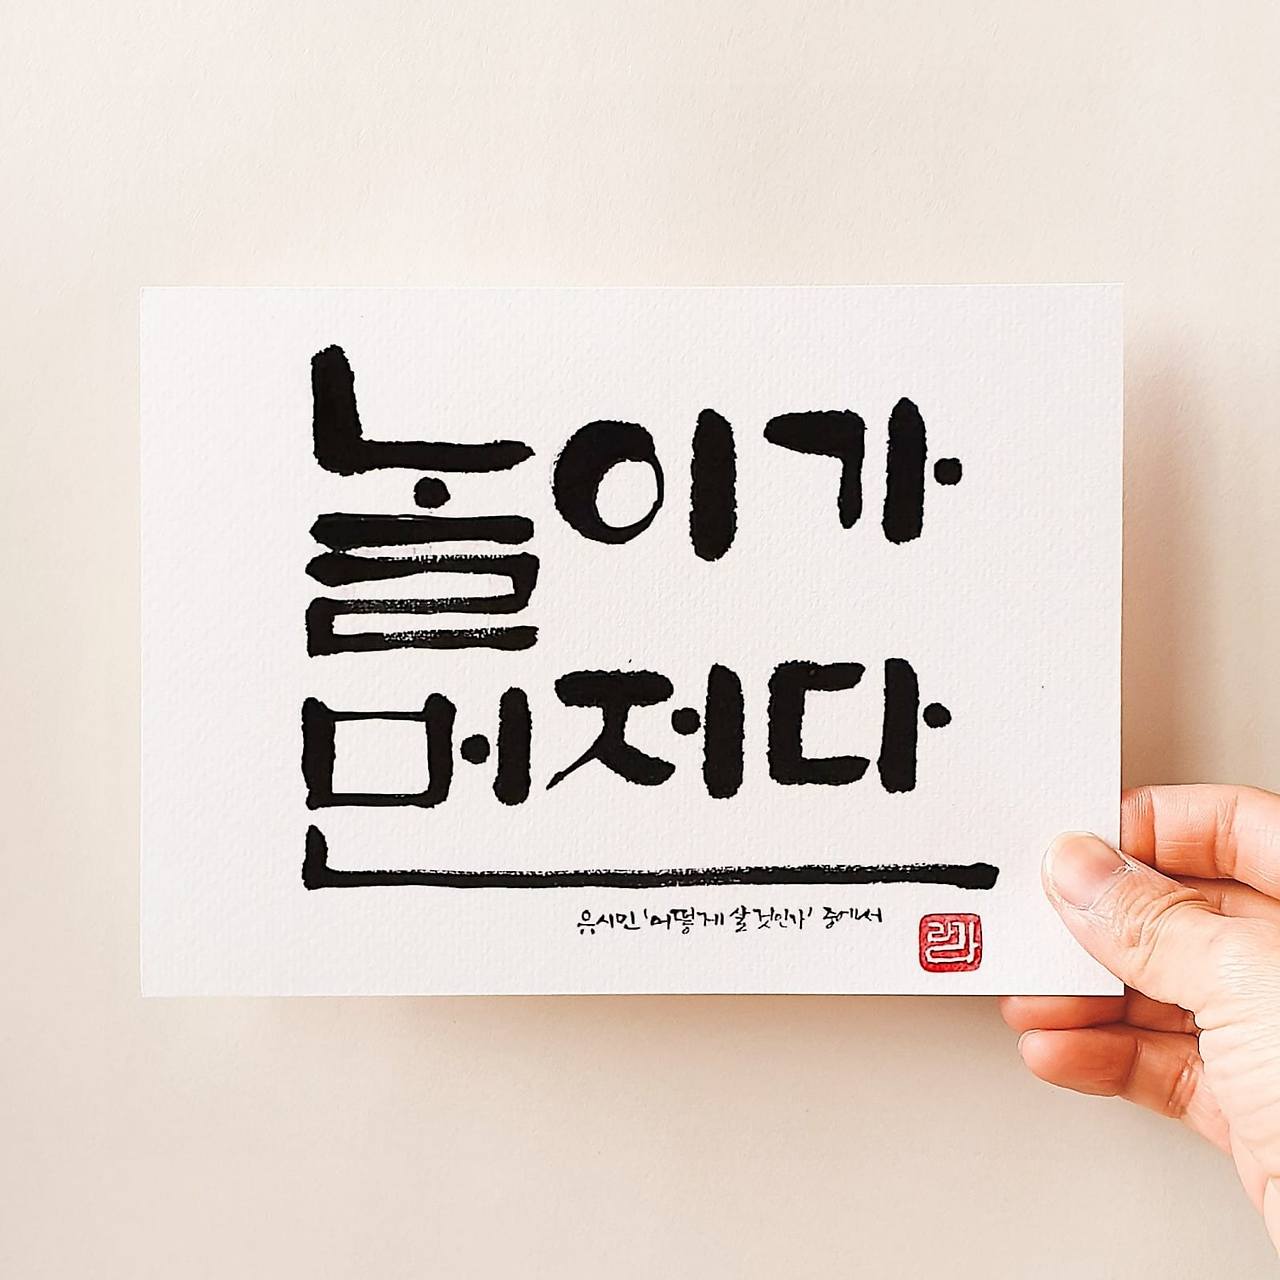 놀이가
먼저다
유시민 '어떻게 살 것인가' 중에서